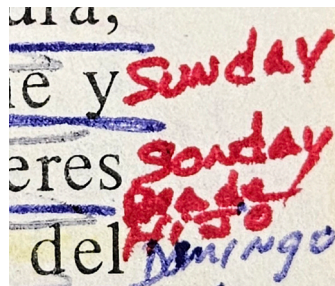 ura,
e y Sunday
eres Sonday
del Domingo